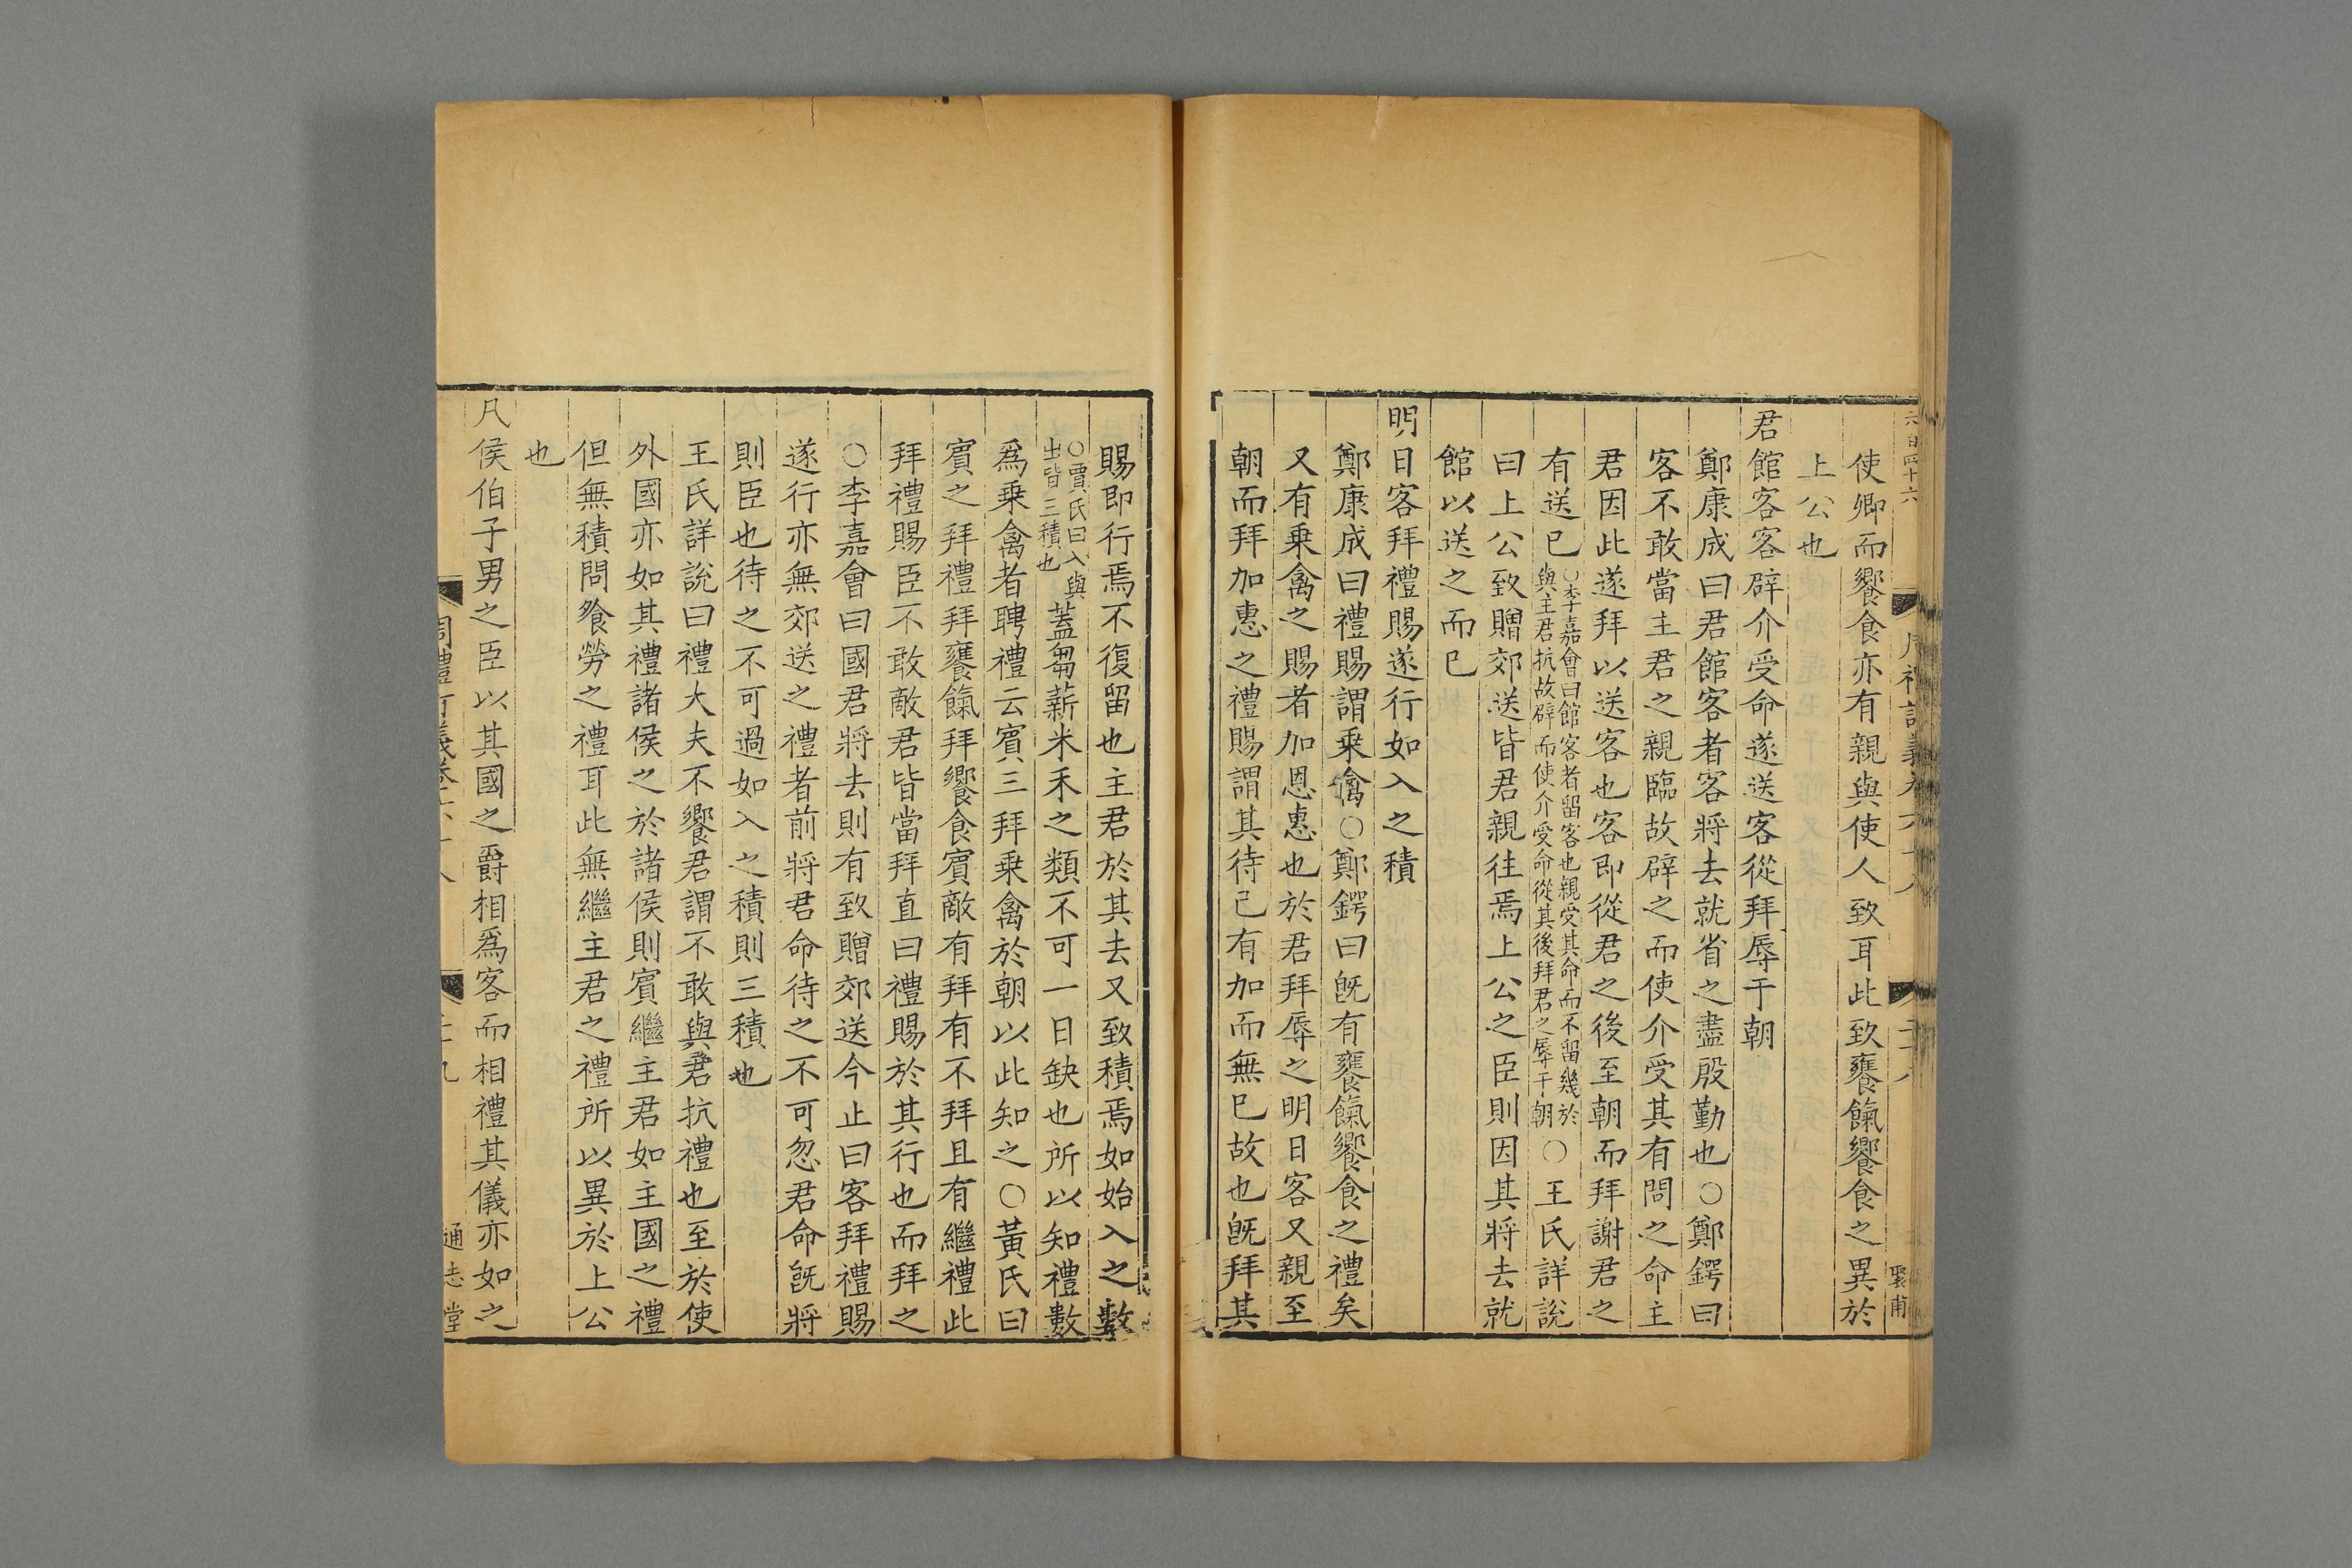 使卿而饗食亦有親與使人致耳此致饔餼饗食之異於
上公也
君館客客辟介受命遂送客從拜辱于朝
鄭康成曰君館客者客將去就省之盡殷勤也○鄭鍔曰
客不敢當主君之親臨故辟之而使介受其有問之命主
君因此遂拜以送客也客即從君之後至朝而拜謝君之
有送已
○李嘉會曰館客者留客也親受其命而不留幾於
與主君抗故辟而使介受命從其後拜君之辱于朝
○王氏詳說
曰上公致贈郊送皆君親往焉上公之臣則因其將去就
館以送之而已
明日客拜禮賜遂行如入之積
鄭康成曰禮賜謂乗禽○鄭鍔曰旣有饔餼饗食之禮矣
又有乗禽之賜者加恩惠也於君拜辱之明日客又親至
朝而拜加惠之禮賜謂其待己有加而無已故也旣拜其
賜即行焉不復留也主君於其去又致積焉如始入之數
○賈氏曰入與
出皆三積也
蓋芻薪米禾之類不可一日缺也所以知禮數
爲乗禽者聘禮云賔三拜乗禽於朝以此知之○黃氏曰
賔之拜禮拜饔餼拜饗食賔敵有拜有不拜且有繼禮此
拜禮賜臣不敢敵君皆當拜直曰禮賜於其行也而拜之
○李嘉會曰國君將去則有致贈郊送今止曰客拜禮賜
遂行亦無郊送之禮者前將君命待之不可忽君命旣將
則臣也待之不可過如入之積則三積也
王氏詳說曰禮大夫不饗君謂不敢與君抗禮也至於使
外國亦如其禮諸侯之於諸侯則賔繼主君如主國之禮
但無積問飱勞之禮耳此無繼主君之禮所以異於上公
也
凡侯伯子男之臣以其國之爵相爲客而相禮其儀亦如之
通志堂